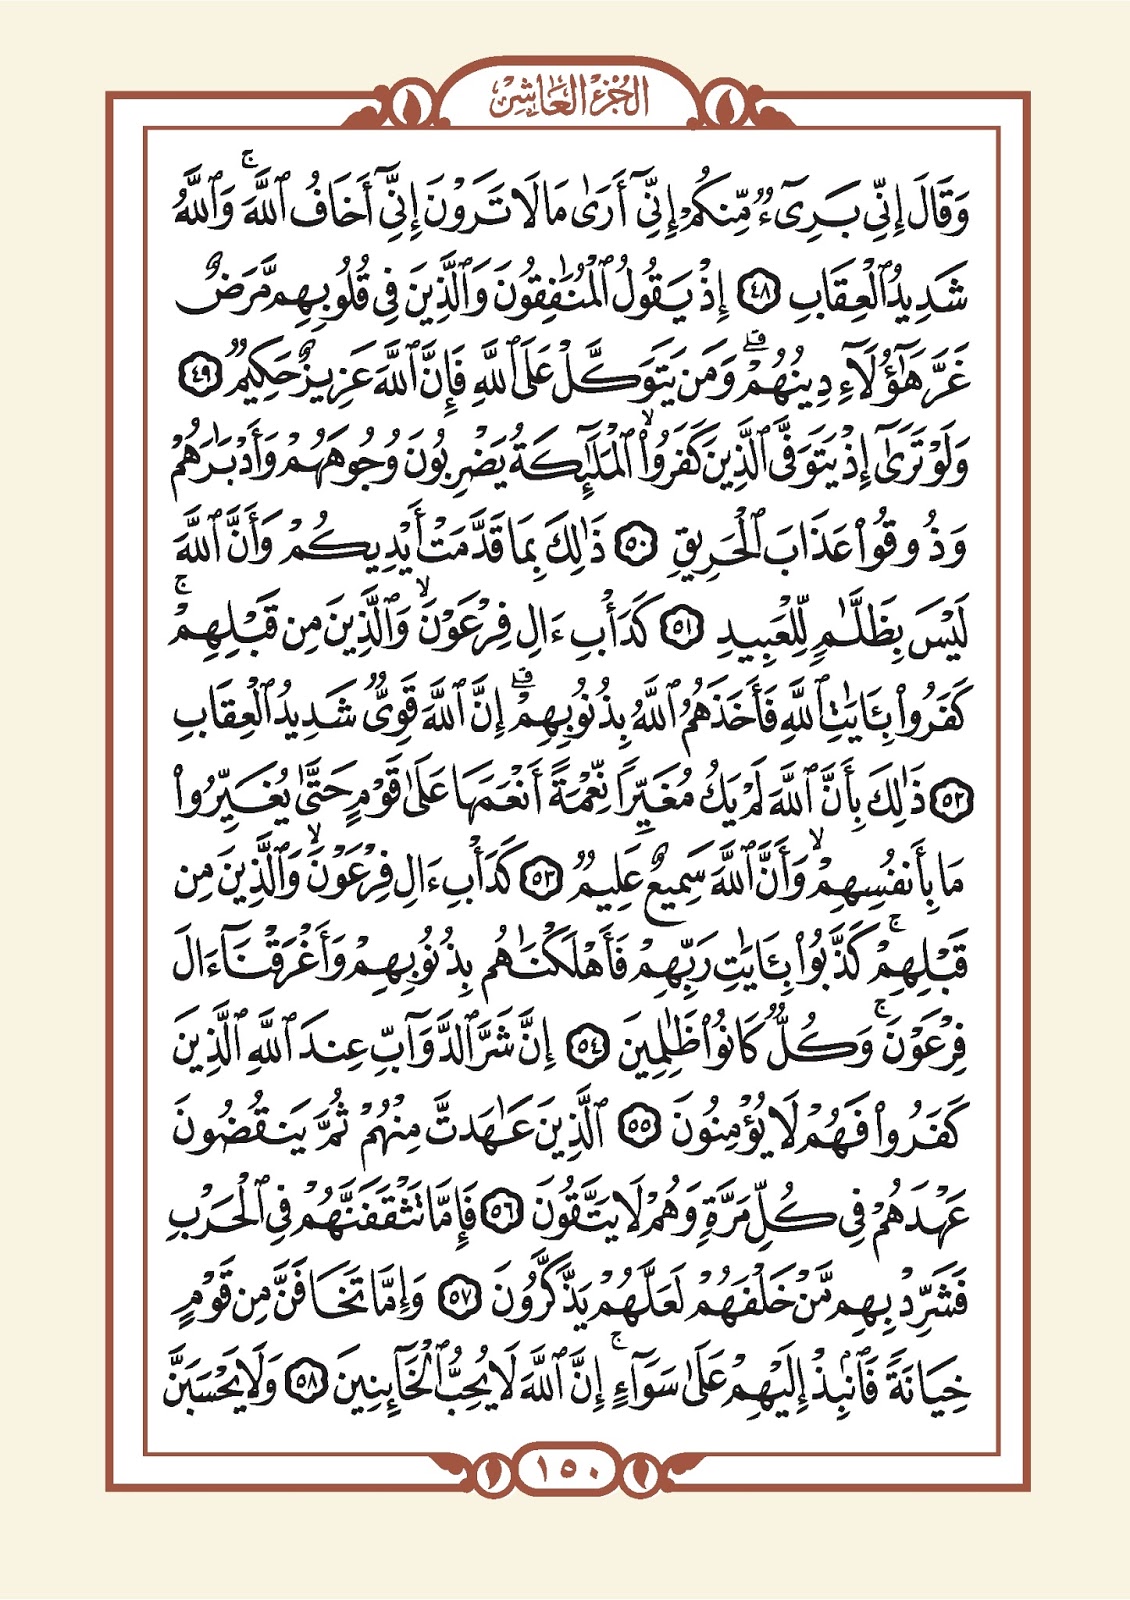 الجزء العاشر
وَقَالَ إِنِّي بَرِيٓءٞ مِّنكُمۡ إِنِّيٓ أَرَىٰ مَا لَا تَرَوۡنَ إِنِّيٓ أَخَافُ ٱللَّهَۚ وَٱللَّهُ
شَدِيدُ ٱلۡعِقَابِ ٤٨ إِذۡ يَقُولُ ٱلۡمُنَٰفِقُونَ وَٱلَّذِينَ فِي قُلُوبِهِم مَّرَضٌ
غَرَّ هَٰٓؤُلَآءِ دِينُهُمۡۗ وَمَن يَتَوَكَّلۡ عَلَى ٱللَّهِ فَإِنَّ ٱللَّهَ عَزِيزٌ حَكِيمٞ ٤٩
وَلَوۡ تَرَىٰٓ إِذۡ يَتَوَفَّى ٱلَّذِينَ كَفَرُواْۙ ٱلۡمَلَٰٓئِكَةُ يَضۡرِبُونَ وُجُوهَهُمۡ وَأَدۡبَٰرَهُمۡ
وَذُوقُواْ عَذَابَ ٱلۡحَرِيقِ ٥٠ ذَٰلِكَ بِمَا قَدَّمَتۡ أَيۡدِيكُمۡ وَأَنَّ ٱللَّهَ
لَيۡسَ بِظَلَّٰمٖ لِّلۡعَبِيدِ ٥١ كَدَأۡبِ ءَالِ فِرۡعَوۡنَۙ وَٱلَّذِينَ مِن قَبۡلِهِمۡۚ
كَفَرُواْ بِـَٔايَٰتِ ٱللَّهِ فَأَخَذَهُمُ ٱللَّهُ بِذُنُوبِهِمۡۗ إِنَّ ٱللَّهَ قَوِيّٞ شَدِيدُ ٱلۡعِقَابِ
٥٢ ذَٰلِكَ بِأَنَّ ٱللَّهَ لَمۡ يَكُ مُغَيِّرٗا نِّعۡمَةً أَنۡعَمَهَا عَلَىٰ قَوۡمٍ حَتَّىٰ يُغَيِّرُواْ
مَا بِأَنفُسِهِمۡۙ وَأَنَّ ٱللَّهَ سَمِيعٌ عَلِيمٞ ٥٣ كَدَأۡبِ ءَالِ فِرۡعَوۡنَۙ وَٱلَّذِينَ مِن
قَبۡلِهِمۡۚ كَذَّبُواْ بِـَٔايَٰتِ رَبِّهِمۡ فَأَهۡلَكۡنَٰهُم بِذُنُوبِهِمۡ وَأَغۡرَقۡنَآ ءَالَ
فِرۡعَوۡنَۚ وَكُلّٞ كَانُواْ ظَٰلِمِينَ ٥٤ إِنَّ شَرَّ ٱلدَّوَآبِّ عِندَ ٱللَّهِ ٱلَّذِينَ
كَفَرُواْ فَهُمۡ لَا يُؤۡمِنُونَ ٥٥ ٱلَّذِينَ عَٰهَدتَّ مِنۡهُمۡ ثُمَّ يَنقُضُونَ
عَهۡدَهُمۡ فِي كُلِّ مَرَّةٖ وَهُمۡ لَا يَتَّقُونَ ٥٦ فَإِمَّا تَثۡقَفَنَّهُمۡ فِي ٱلۡحَرۡبِ
فَشَرِّدۡ بِهِم مَّنۡ خَلۡفَهُمۡ لَعَلَّهُمۡ يَذَّكَّرُونَ ٥٧ وَإِمَّا تَخَافَنَّ مِن قَوۡمٍ
خِيَانَةٗ فَٱنۢبِذۡ إِلَيۡهِمۡ عَلَىٰ سَوَآءٍۚ إِنَّ ٱللَّهَ لَا يُحِبُّ ٱلۡخَآئِنِينَ ٥٨ وَلَا يَحۡسَبَنَّ
١٥٠